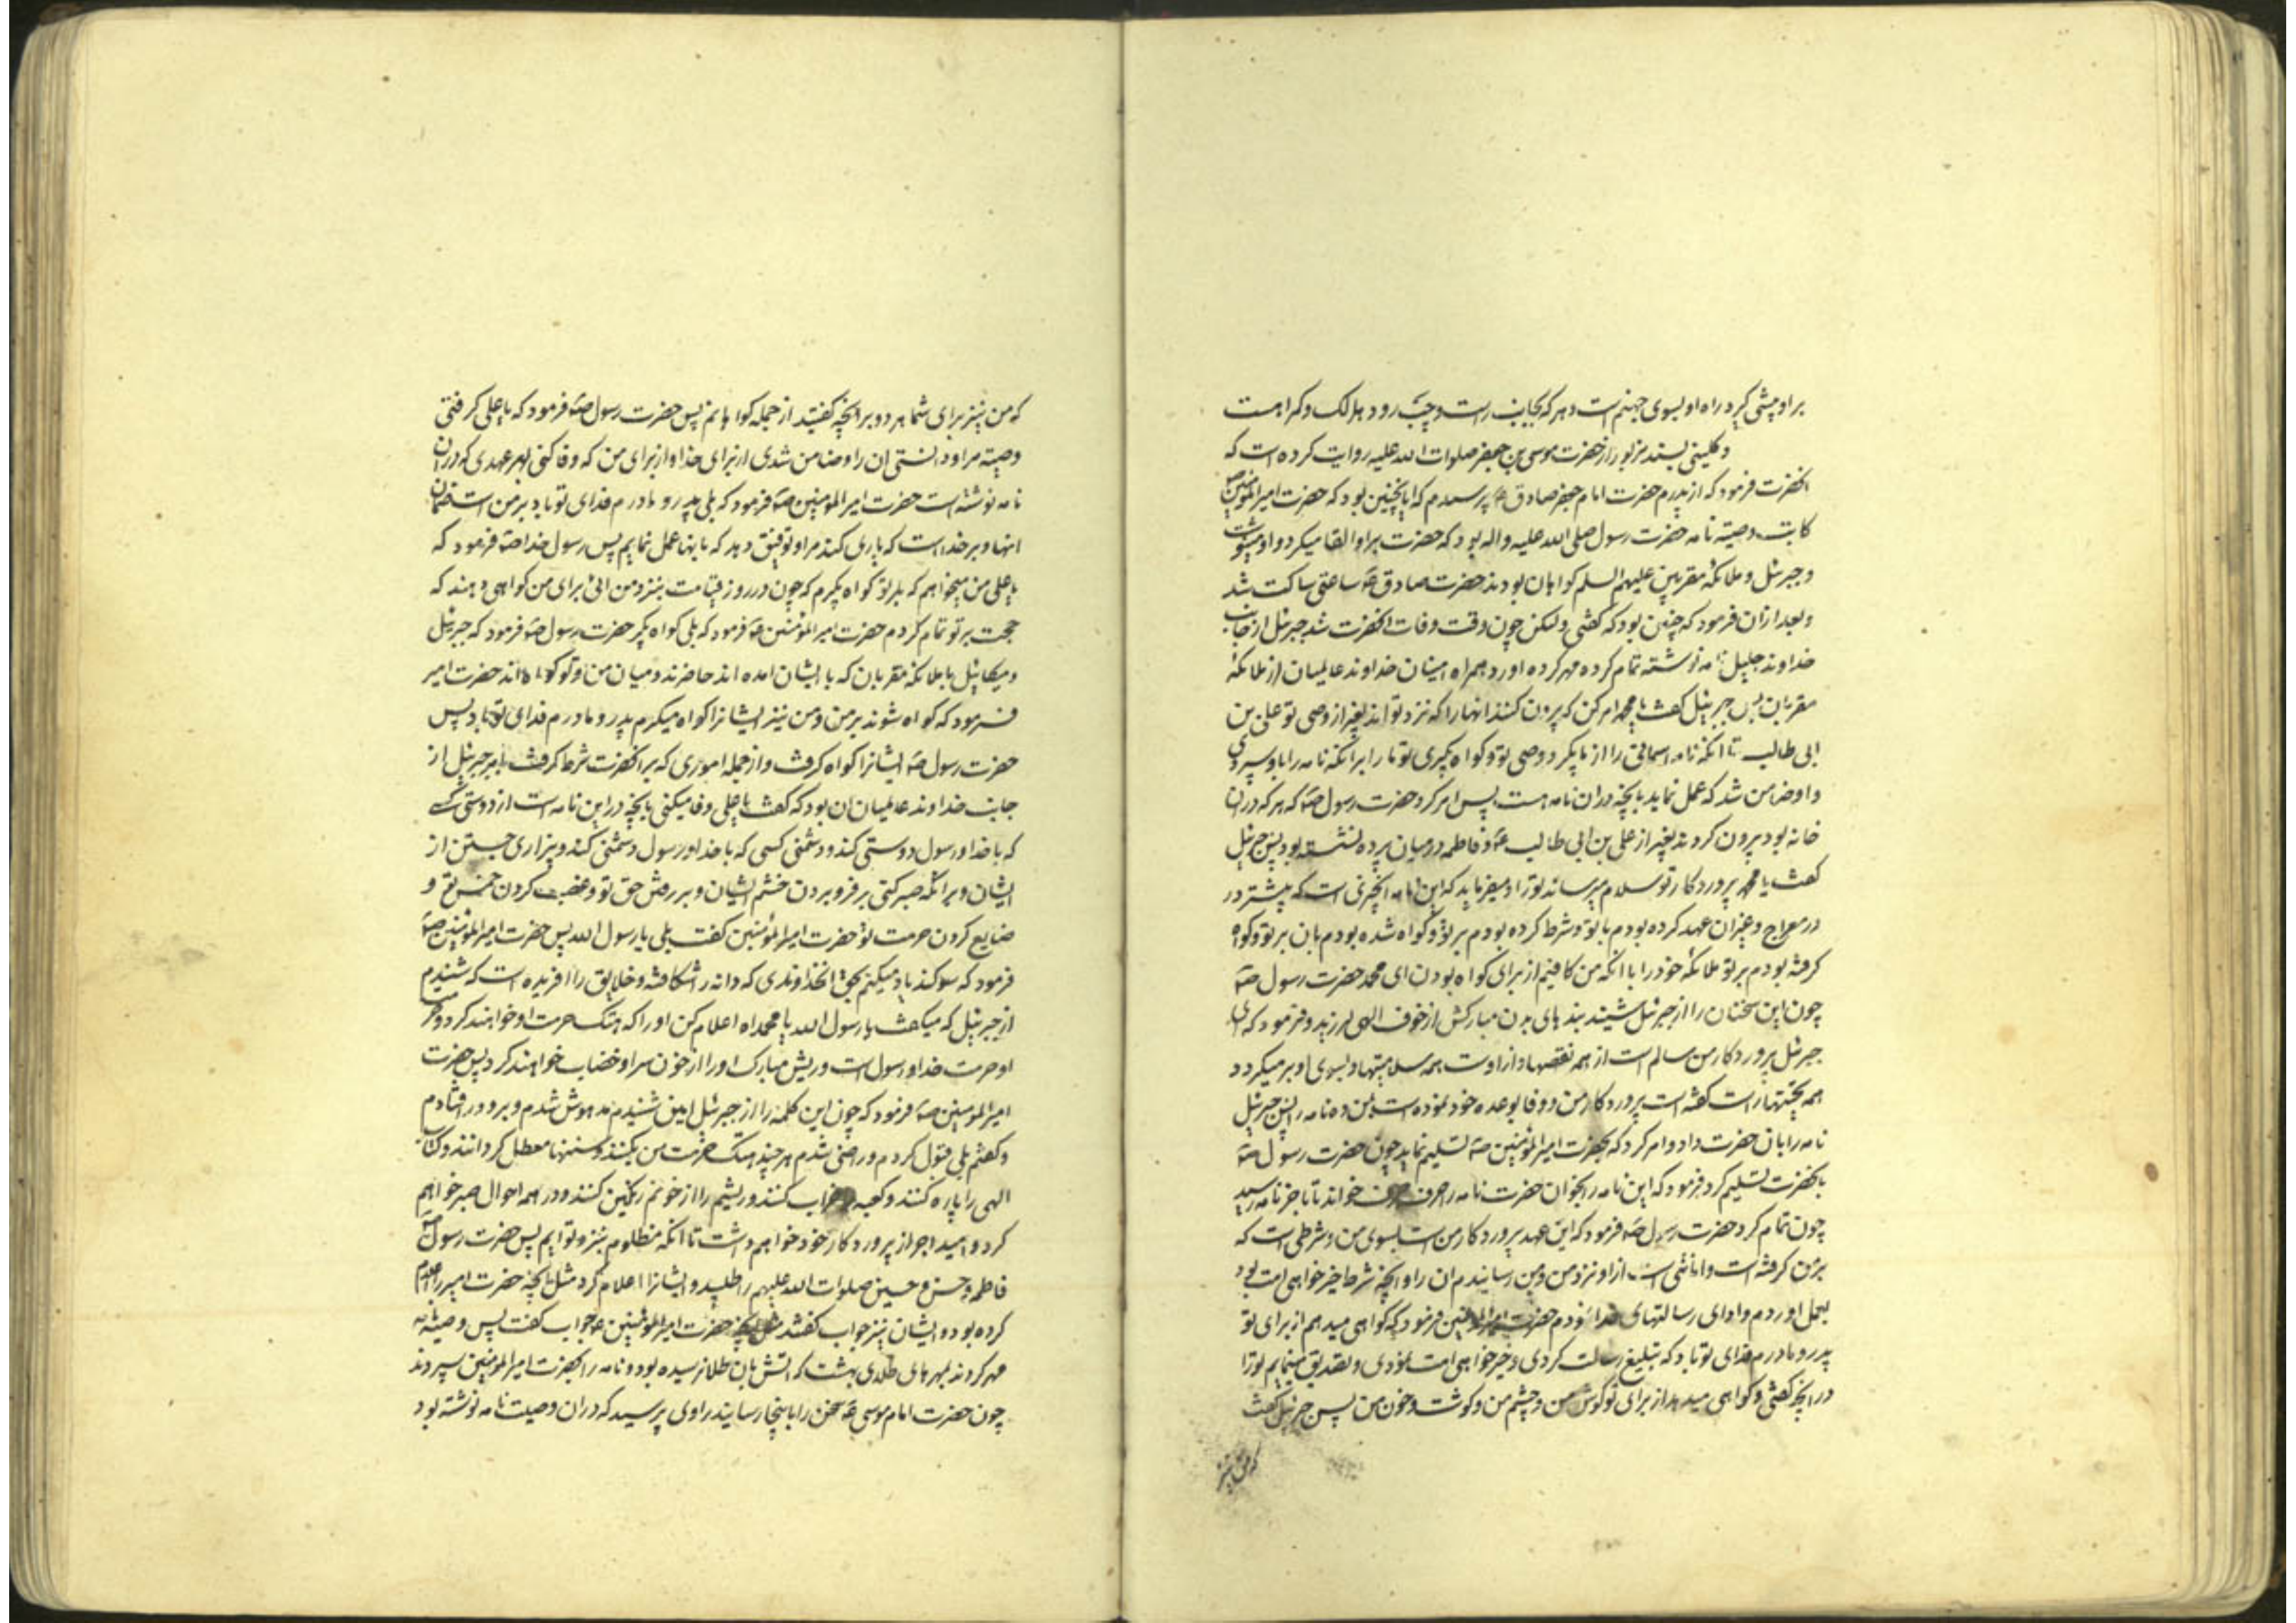 بر او پیشی کیرد راه او بسوی جهنم است و هر که بجانب راست و چپ رود هلاک و کمراهست
و کلینی بسند مزبور از حضرت موسی بن جعفر صلوات الله علیه روایت کرده است که
انحضرت فرمود که از پدرم حضرت امام جعفر صادق ع پرسیدم که ایا نچنین بود که حضرت امیر المومنین ص
کاتب وصیته نامه حضرت رسول صلی الله علیه و اله بود که حضرت بر او القا میکرد و او مینوشت
و جبرئیل و ملائکه مقربین علیهم السلم کواهان بودند حضرت صادق ع ساعتی ساکت شد
و بعد از ان فرمود که چنین بود که کفتی ولیکن چون وقت وفات انحضرت شد جبرئیل از جانب
خداوند جلیل نامه نوشته تمام کرده مهر کرده اورد بهمراه امینان خداوند عالمیان از ملائکه
مقربان پس جبرئیل کفت یا محمد امر کن که بیرون کنند انها را که نزد تواند بغیر از وصی تو علی بن
ابی طالب تا انکه نامه اسمانی را از ما بکیرد وصی تو و کواه بکیری تو ما را بر انکه نامه را باو سپردی
و او ضامن شد که عمل نماید بانچه در ان نامه هست پس امر کرد حضرت رسول ص که هر که در ان
خانه بود بیرون کردند بغیر از علی بن ابی طالب ع و فاطمه در میان پرده نشسته بود پس جبرئیل
کفت یا محمد پروردکار تو سلام میرساند تو را و میفرماید که این نامه انچیزی است که پیشتر در
در معراج و غیر ان عهد کرده بودم با تو و شرط کرده بودم بر تو و کواه شده بودم بان بر تو و کواه
کرفته بودم بر تو ملائکه خود را با انکه من کافیم از برای کواه بودن ای محمد حضرت رسول ص
چون این سخنان را از جبرئیل شنیند بند های بدن مبارکش از خوف الهی لرزید و فرمود که ای
جبرئیل پروردکار من سالم است از همه نقصها و از اوست همه سلامتیها و بسوی او بر میکردد
همه تحیتها راست کفته است پروردکار من و وفا بوعده خود نموده است بمن ده نامه را پس جبرئیل
نامه را بان حضرت داد و امر کرد که بحضرت امیر المؤمنین ص تسلیم نماید چون حضرت رسول ص
بانحضرت تسلیم کرد فرمود که این نامه را بخوان حضرت نامه را حرف حرف خواند تا باخر نامه رسید
چون تمام کرد حضرت رسول ص فرمود که این عهد پروردکار منست بسوی من و شرطی است که
بر من کرفته است و امانتی است از او نزد من و من رسانیدم ان را و انچه شرط خیر خواهی امت بود
بعمل اوردم و ادای رسالتهای خدا نمودم حضرت امیر المؤمنین فرمود که کواهی میدهم از برای تو
پدر و مادرم فدای تو باد که تبلیغ رسالت کردی و خیر خواهی امت نمودی و تصدیق مینمایم تو را
در انچه کفتی و کواهی میدهد از برای تو کوش من و چشم من و کوشت و خون من پس جبرئیل کفت
که من نیز
که من نیز برای شما هر دو بر انچه کفتید از جمله کواهانم پس حضرت رسول ص فرمود که یا علی کرفتی
وصیته مرا و دانستی ان را و ضامن شدی از برای خدا و از برای من که وفا کنی بهر عهدی که در ان
نامه نوشته است حضرت امیر المومنین ص فرمود که بلی پدر و مادرم فدای تو باد بر من است ضمان
انها و بر خداست که یاری کند مرا و توفیق دهد که بانها عمل نمایم پس رسول خدا ص فرمود که
یا علی من میخواهم که بر تو کواه بکیرم که چون در روز قیامت بنزد من ائی برای من کواهی دهند که
حجت بر تو تمام کردم حضرت امیر المؤمنین ص فرمود که بلی کواه بکیر حضرت رسول ص فرمود که جبرئیل
و میکائیل با ملائکه مقربان که با ایشان امده اند حاضرند و میان من و تو کواه اند حضرت امیر
فرمود که کواه شوند بر من و من نیز ایشانرا کواه میکیرم پدر و مادرم فدای تو باد پس
حضرت رسول ص ایشانرا کواه کرفت و از جمله اموری که بر انحضرت شرط کرفت بامر جبرئیل از
جانب خداوند عالمیان ان بود که کفت یا علی وفا میکنی بانچه در این نامه است از دوستی کسی
که با خدا و رسول دوستی کند و دشمنی کسی که با خدا و رسول دشمنی کند و بیزاری جستن از
ایشان و بر انکه صبر کنی بر فرو بردن خشم ایشان و بر رفتن حق تو و غصب کردن خمس تو و
ضایع کردن حرمت تو حضرت امیر المؤمنین کفت بلی یا رسول الله پس حضرت امیر المؤمنین ص
فرمود که سوکند یاد میکنم بحق انخداوندی که دانه را شکافته و خلایق را افریده است که شنیدم
از جبرئیل که میکفت با رسول الله یا محمد اه اعلام کن او را که هتک حرمت او خواهند کرد و حرمت
او حرمت خدا و رسول است و ریش مبارک او را از خون سر او خضاب خواهند کرد پس حضرت
امیر المومنین ص فرمود که چون این کلمه را از جبرئیل امین شنیدم مدهوش شدم و برو در افتادم
و کفتم بلی قبول کردم و راضی شدم هر چند هتک حرمت من بکنند و سنتها معطل کردانند و کتاب
الهی را پاره کنند و کعبه را خراب کنند و ریشم را از خونم رنکین کنند و در همه احوال صبر خواهم
کرد و امید اجر از پروردکار خود خواهم داشت تا انکه مظلوم بنزد تو ایم پس حضرت رسول ص
فاطمه و حسن و حسین صلوات الله علیهم را طلبید و ایشانرا اعلام کرد مثل انچه حضرت امیر را اعلام
کرده بود و ایشان نیز جواب کفتند مثل انچه حضرت امیر المؤمنین ع جواب کفت پس وصیته نامه
مهر کردند بمهر های طلای بهشت که اتش بان طلا نرسیده بود و نامه را بحضرت امیر المومنین سپردند
چون حضرت امام موسی ع سخن را باینجا رسانید راوی پرسید که در ان وصیت نامه نوشته بود